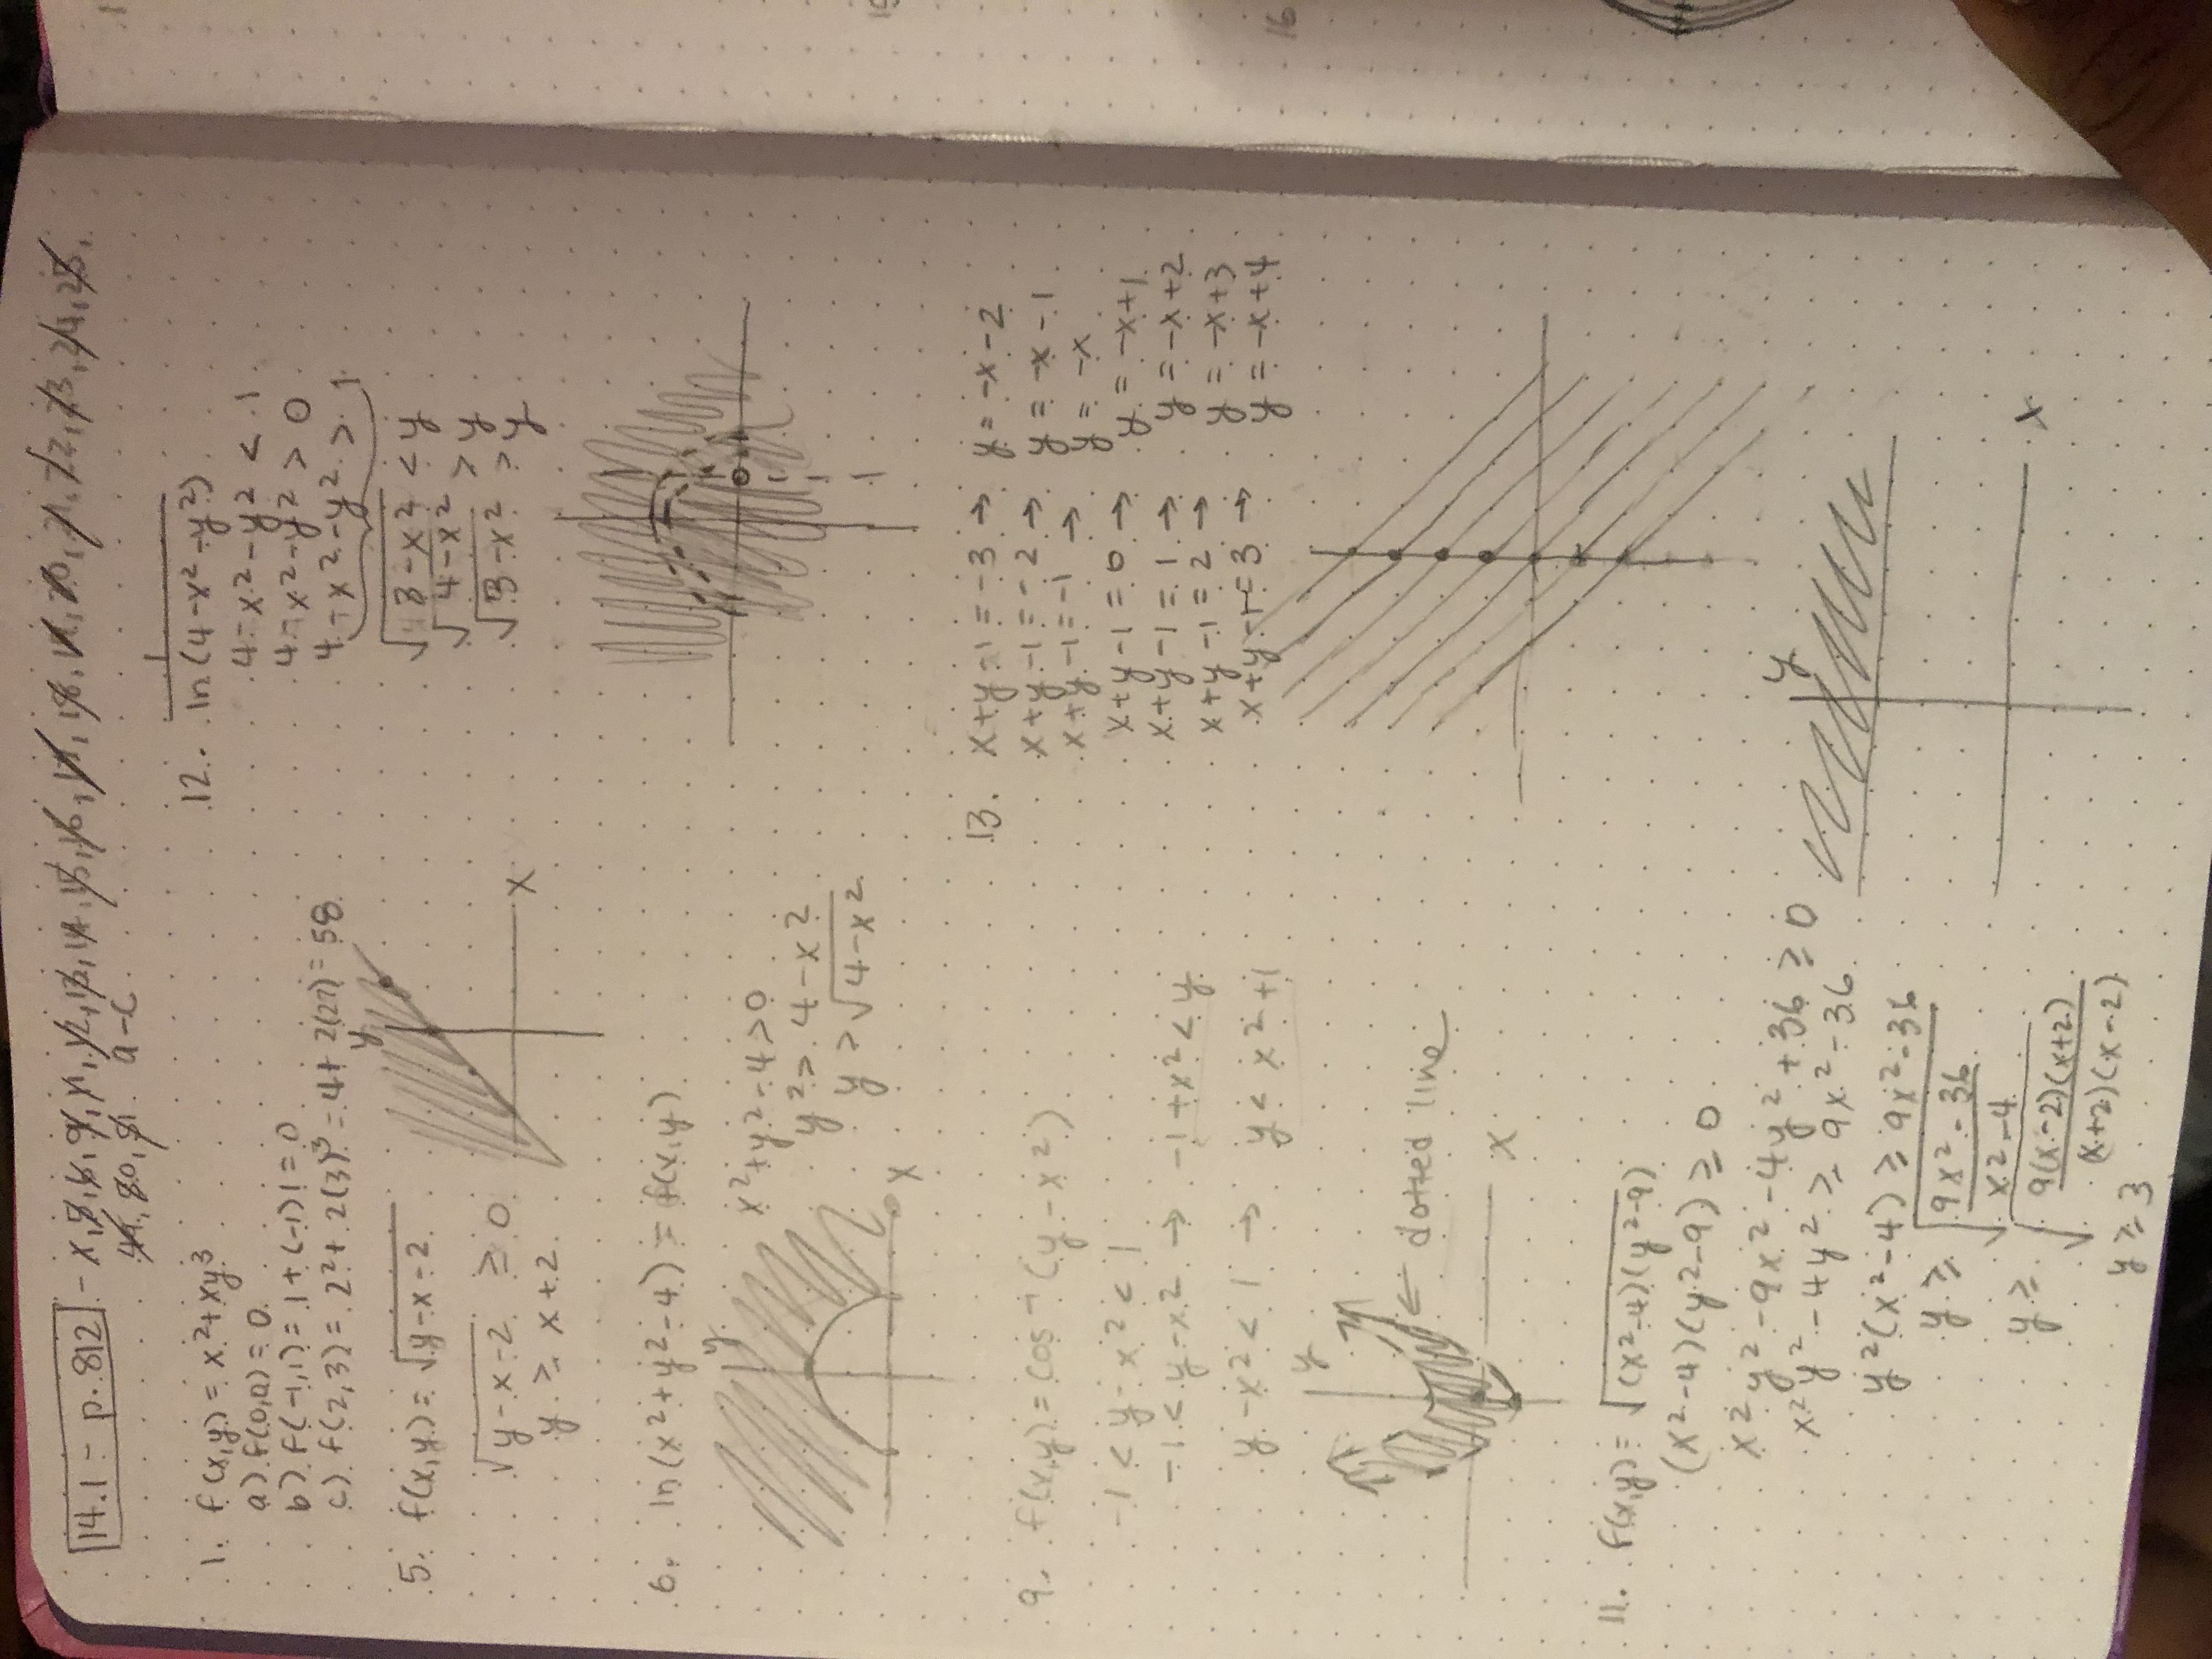 14.1 - p. 812 - x, 5, 6, 9, 11, 12, 13, 14, 15, 16, 17, 18, 19, 20, 21, 22, 23, 24, 25,
80, 81. a-c
1. f(x,y) = x²+xy³
a) f(0,0) = 0
b) f(-1,1) = 1 + (-1)1 = 0
c) f(2,3) = 2² + 2(3)³ = 4+ 2(27) = 58
5. f(x,y) = √(y-x-2)
√(y-x-2) ≥ 0
y ≥ x+2
y
x
6. ln(x²+y²-4) = f(x,y)
y
x²+y²-4>0
y² > 4-x²
y > √(4-x²)
x
9. f(x,y) = cos⁻¹(y-x²)
-1 < y-x² < 1
-1 < y-x² → -1+x² < y
y-x² < 1 → y < x²+1
y
← dotted line
x
11. f(x,y) = √((x²-4)(y²-9))
(x²-4)(y²-9) ≥ 0
x²y²-9x²-4y²+36 ≥ 0
x²y²-4y² ≥ 9x²-36
y²(x²-4) ≥ 9x²-36
y ≥ √((9x²-36)/(x²-4))
y ≥ √((9(x-2)(x+2))/((x+2)(x-2)))
y ≥ 3
y
x
12. 1/ln(4-x²-y²)
4-x²-y² < 1
4-x²-y² > 0
4-x²-y² > 1
√(3-x²) < y
√(4-x²) > y
√(3-x²) > y
13. x+y-1 = -3 → y = -x-2
x+y-1 = -2 → y = -x-1
x+y-1 = -1 → y = -x
x+y-1 = 0 → y = -x+1
x+y-1 = 1 → y = -x+2
x+y-1 = 2 → y = -x+3
x+y-1 = 3 → y = -x+4
16